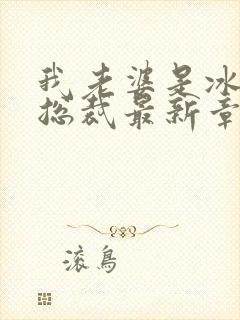 我老婆是冰
总裁最新章
滚鸟